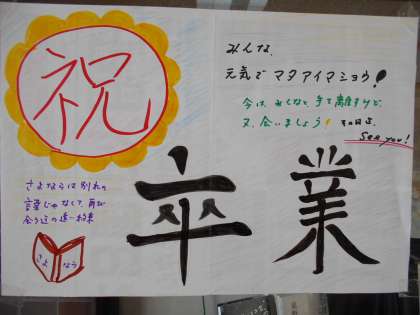 祝
みんな、
元気でマタアイマショウ!
今は、みんなと手を離すけど
又、会いましょう! その日よ
See you!
卒業
さよならは別れの
言葉じゃなくて、再び
会う迄の遠い約束
さよなら